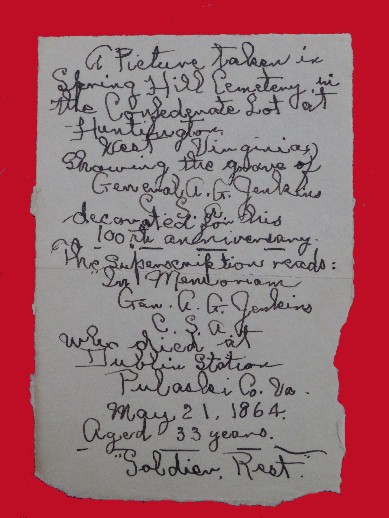 A Picture taken in
Spring Hill Cemetery in
the Confederate Lot at
Huntington
West Virginia,
Showing the grave of
General A. G. Jenkins
C. S. A.
decorated for his
100th anniversary.
The superscription reads:
"In Memoriam
Gen. A. G. Jenkins
C. S. A.
who died at
Dublin Station
Pulaski Co. Va.
May 21, 1864.
Aged 33 years.
"Soldier, Rest."